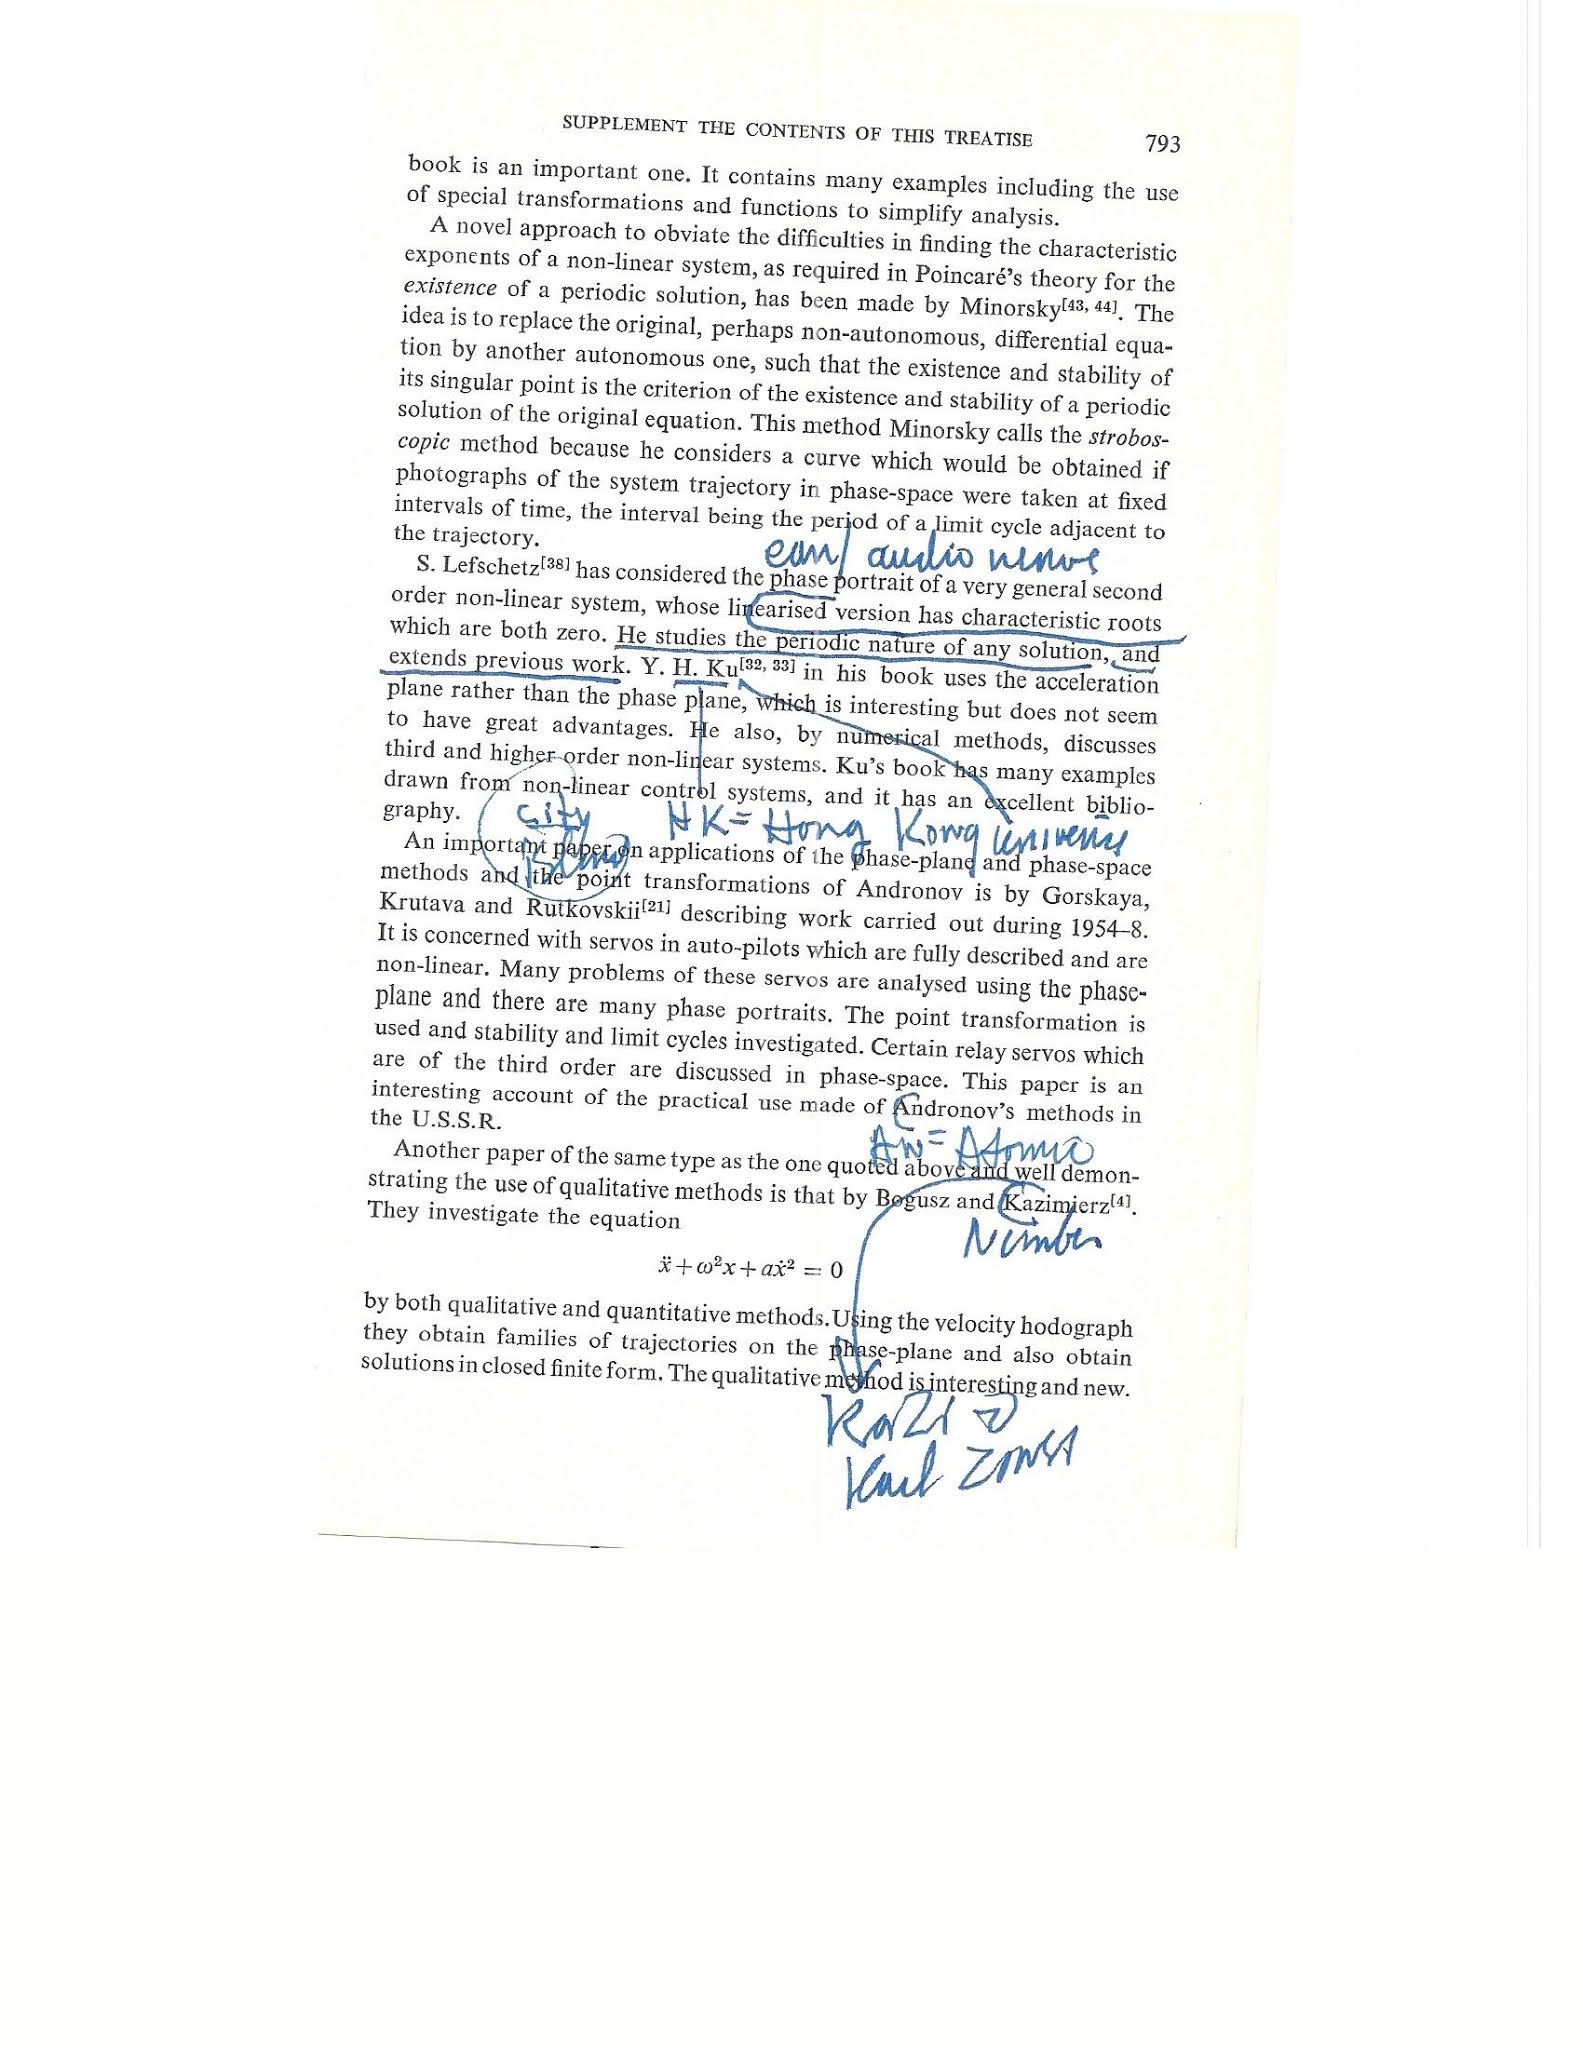 SUPPLEMENT THE CONTENTS OF THIS TREATISE 793
book is an important one. It contains many examples including the use
of special transformations and functions to simplify analysis.
A novel approach to obviate the difficulties in finding the characteristic
exponents of a non-linear system, as required in Poincaré's theory for the
existence of a periodic solution, has been made by Minorsky[43, 44]. The
idea is to replace the original, perhaps non-autonomous, differential equa-
tion by another autonomous one, such that the existence and stability of
its singular point is the criterion of the existence and stability of a periodic
solution of the original equation. This method Minorsky calls the strobos-
copic method because he considers a curve which would be obtained if
photographs of the system trajectory in phase-space were taken at fixed
intervals of time, the interval being the period of a limit cycle adjacent to
the trajectory.
ear/ audio nerve
S. Lefschetz[38] has considered the phase portrait of a very general second
order non-linear system, whose linearised version has characteristic roots
which are both zero. He studies the periodic nature of any solution, and
extends previous work. Y. H. Ku[32, 33] in his book uses the acceleration
plane rather than the phase plane, which is interesting but does not seem
to have great advantages. He also, by numerical methods, discusses
third and higher order non-linear systems. Ku's book has many examples
drawn from non-linear control systems, and it has an excellent biblio-
graphy.
City HK = Hong Kong
An important paper on applications of the phase-plane and phase-space
methods and the point transformations of Andronov is by Gorskaya,
Krutava and Rutkovskii[21] describing work carried out during 1954–8.
It is concerned with servos in auto-pilots which are fully described and are
non-linear. Many problems of these servos are analysed using the phase-
plane and there are many phase portraits. The point transformation is
used and stability and limit cycles investigated. Certain relay servos which
are of the third order are discussed in phase-space. This paper is an
interesting account of the practical use made of Andronov's methods in
the U.S.S.R.
AN = Atomic
Another paper of the same type as the one quoted above and well demon-
strating the use of qualitative methods is that by Bogusz and Kazimierz[4].
They investigate the equation
Number
ẍ + ω²x + aẋ² = 0
by both qualitative and quantitative methods. Using the velocity hodograph
they obtain families of trajectories on the phase-plane and also obtain
solutions in closed finite form. The qualitative method is interesting and new.
Kazi
Karl